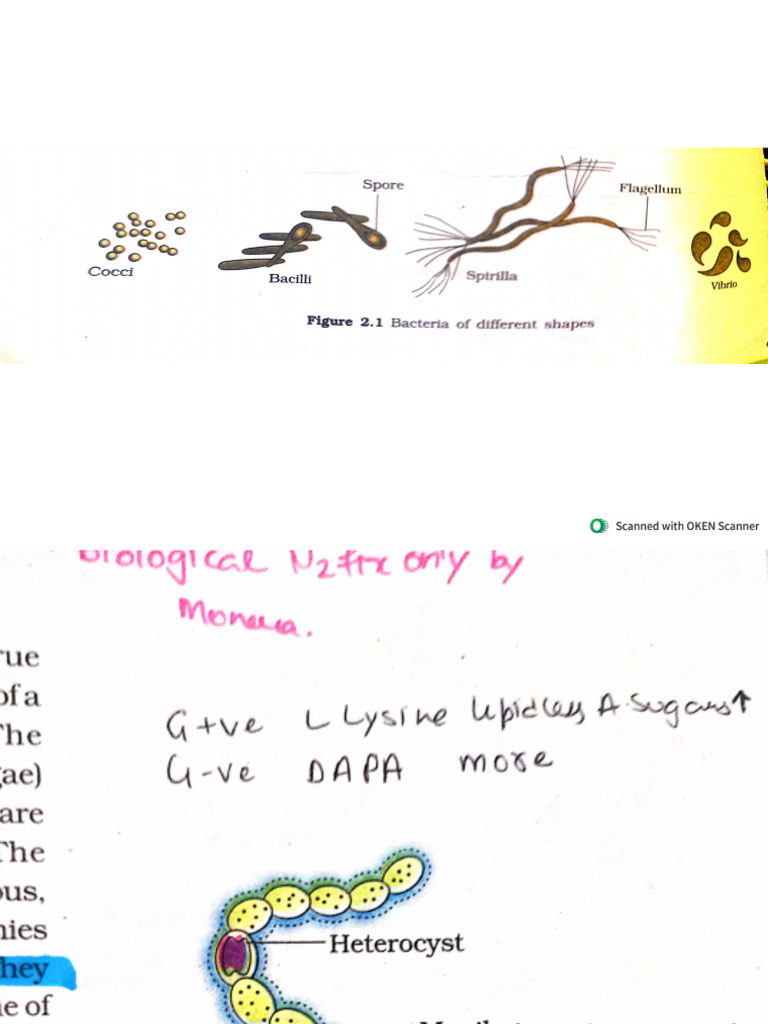 Spore
Flagellum
Cocci
Bacilli
Spirilla
Vibrio
Figure 2.1 Bacteria of different shapes
Scanned with OKEN Scanner
biological N2 fix only by
Monera.
rue
of a
The
gae)
are
The
ous,
nies
hey
ne of
G+ve L Lysine lipid less A.Sugars↑
G-ve DAPA more
Heterocyst